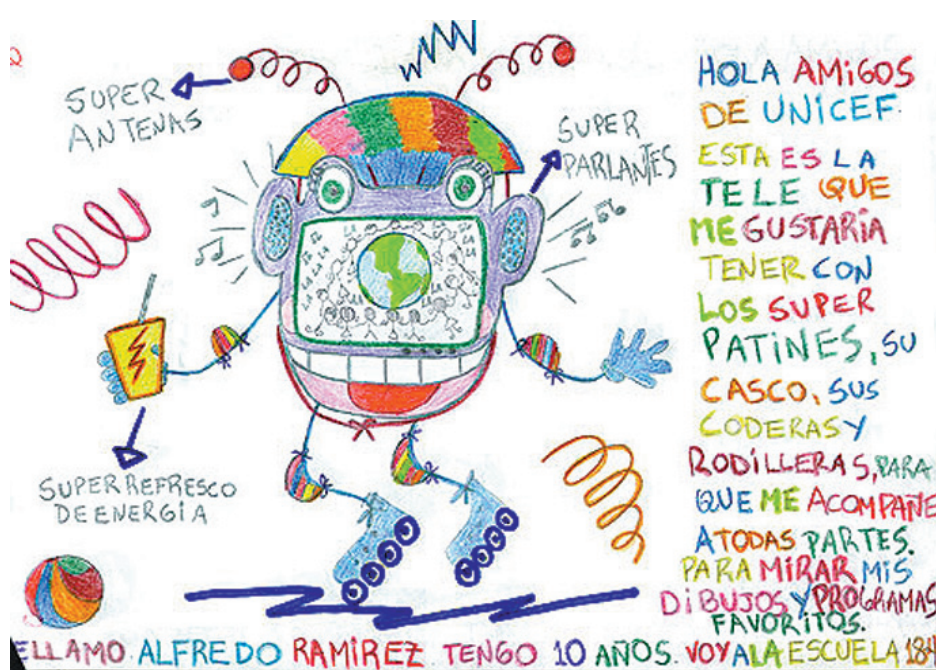 SUPER
ANTENAS
SUPER
PARLANTES
LA LA LA
LA
LA
SUPER REFRESCO
DE ENERGIA
HOLA AMIGOS
DE UNICEF.
ESTA ES LA
TELE QUE
ME GUSTARÍA
TENER CON
LOS SUPER
PATINES, SU
CASCO, SUS
CODERAS Y
RODILLERAS, PARA
QUE ME ACOMPAÑE
A TODAS PARTES.
PARA MIRAR MIS
DIBUJOS Y PROGRAMAS
FAVORITOS.
ELLAMO ALFREDO RAMIREZ TENGO 10 AÑOS. VOY A LA ESCUELA 184